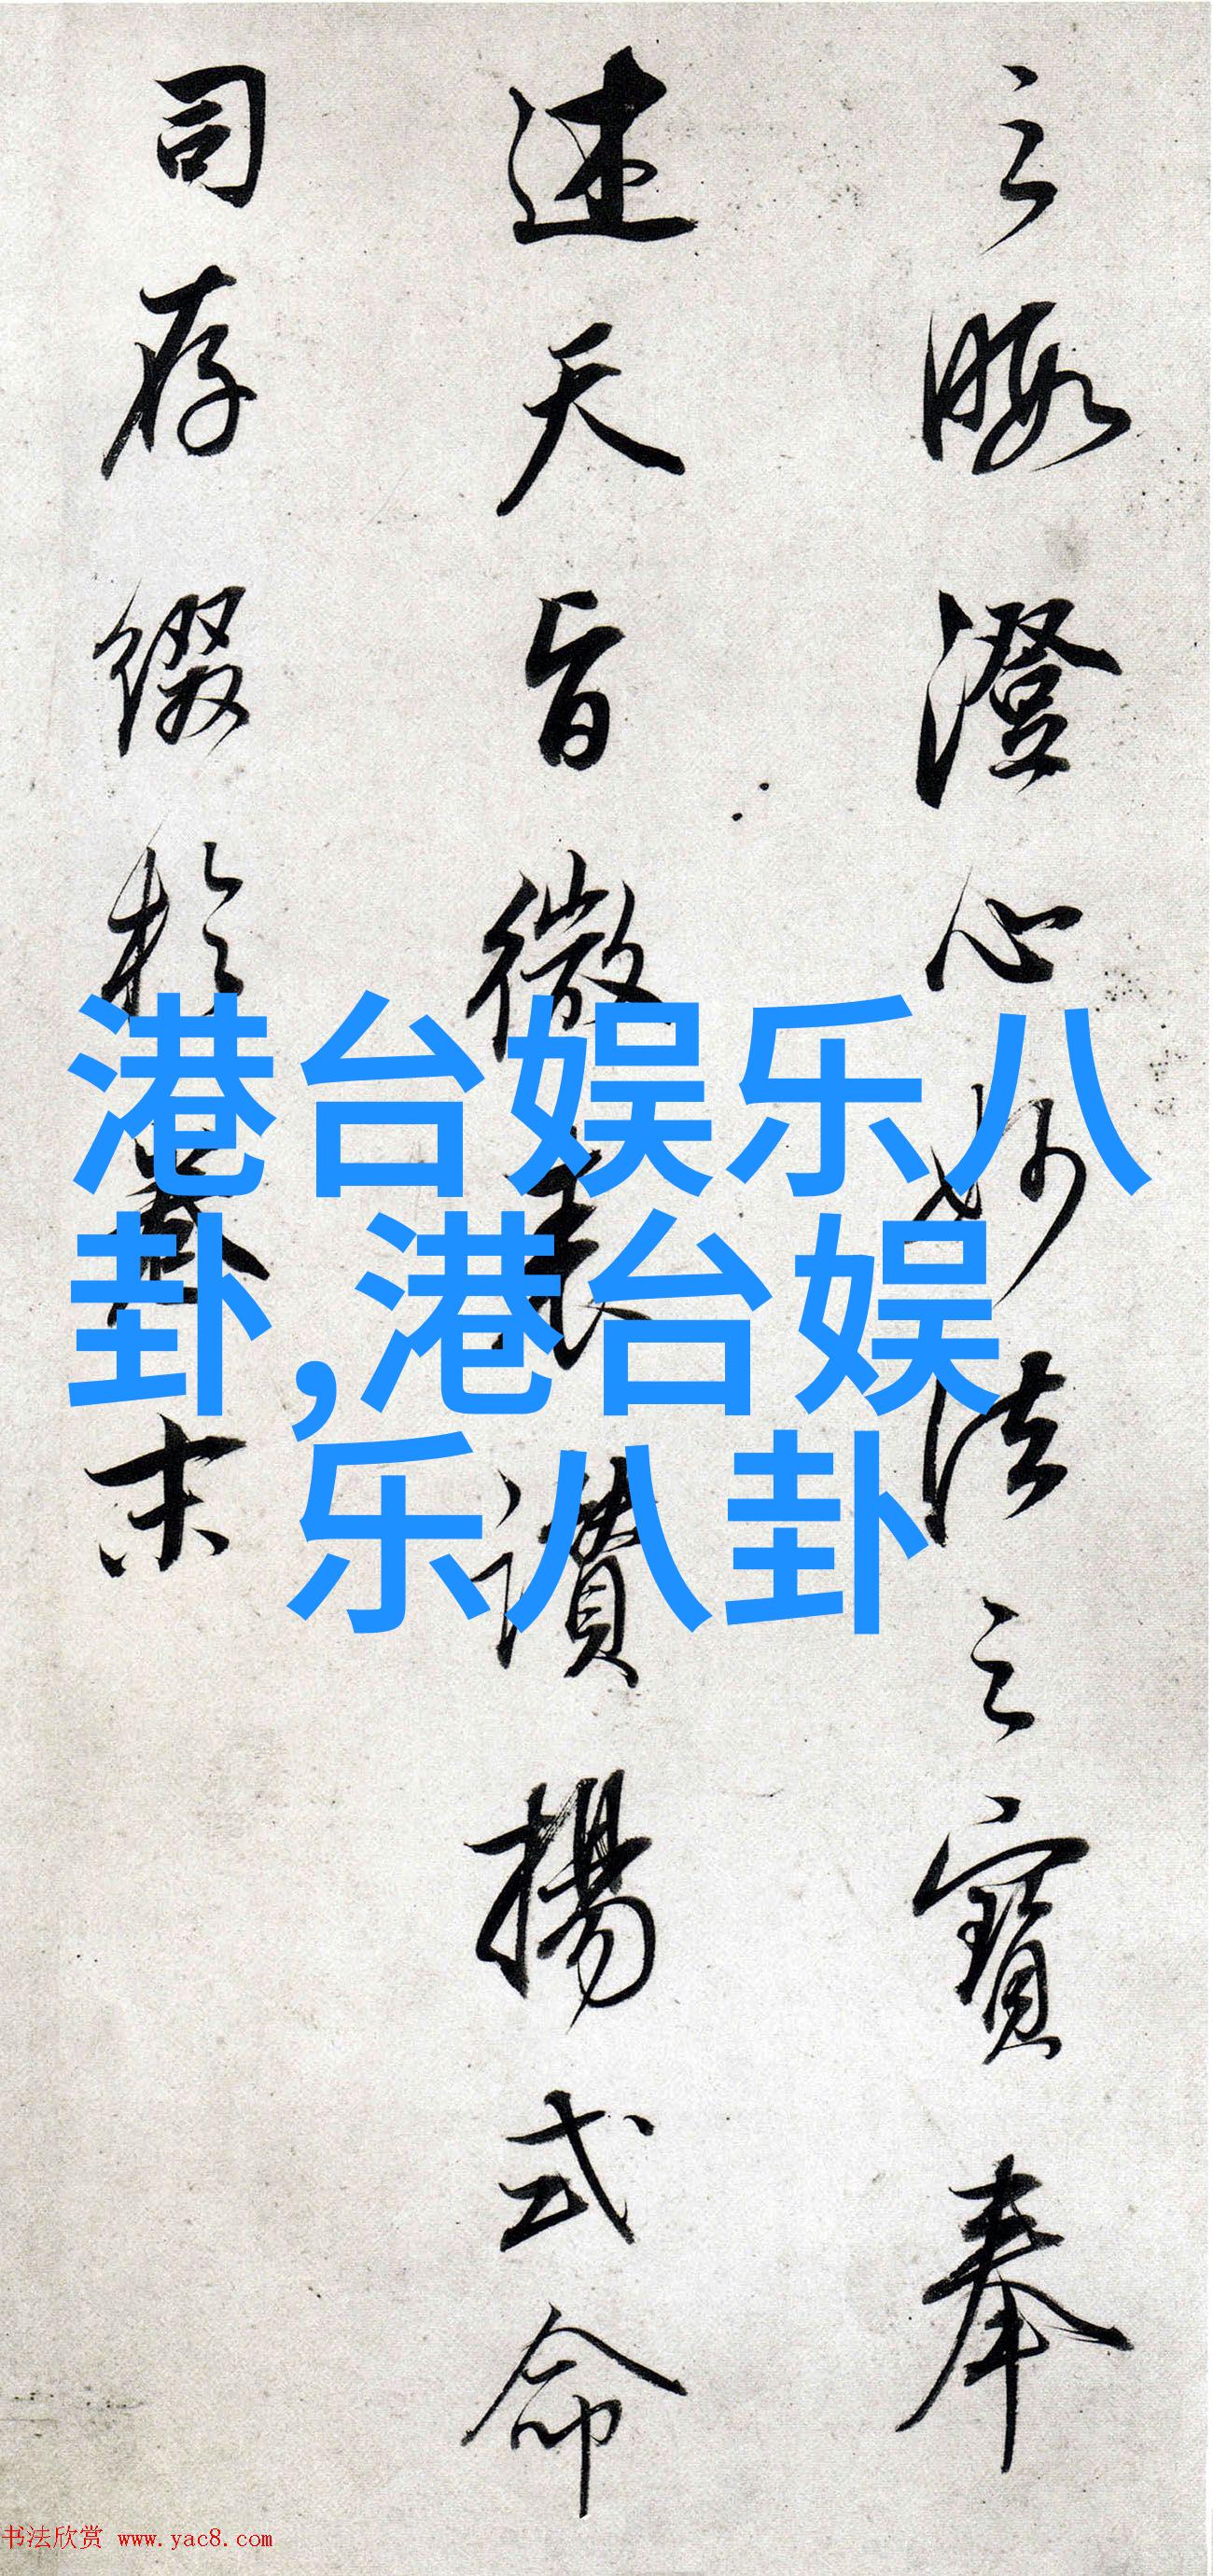 之暇澄心妙法之寶奉
述天旨微表讚揚式命
司存綴於卷末
港台娱乐八
卦,港台娱
乐八卦
书法欣赏 www.yac8.com